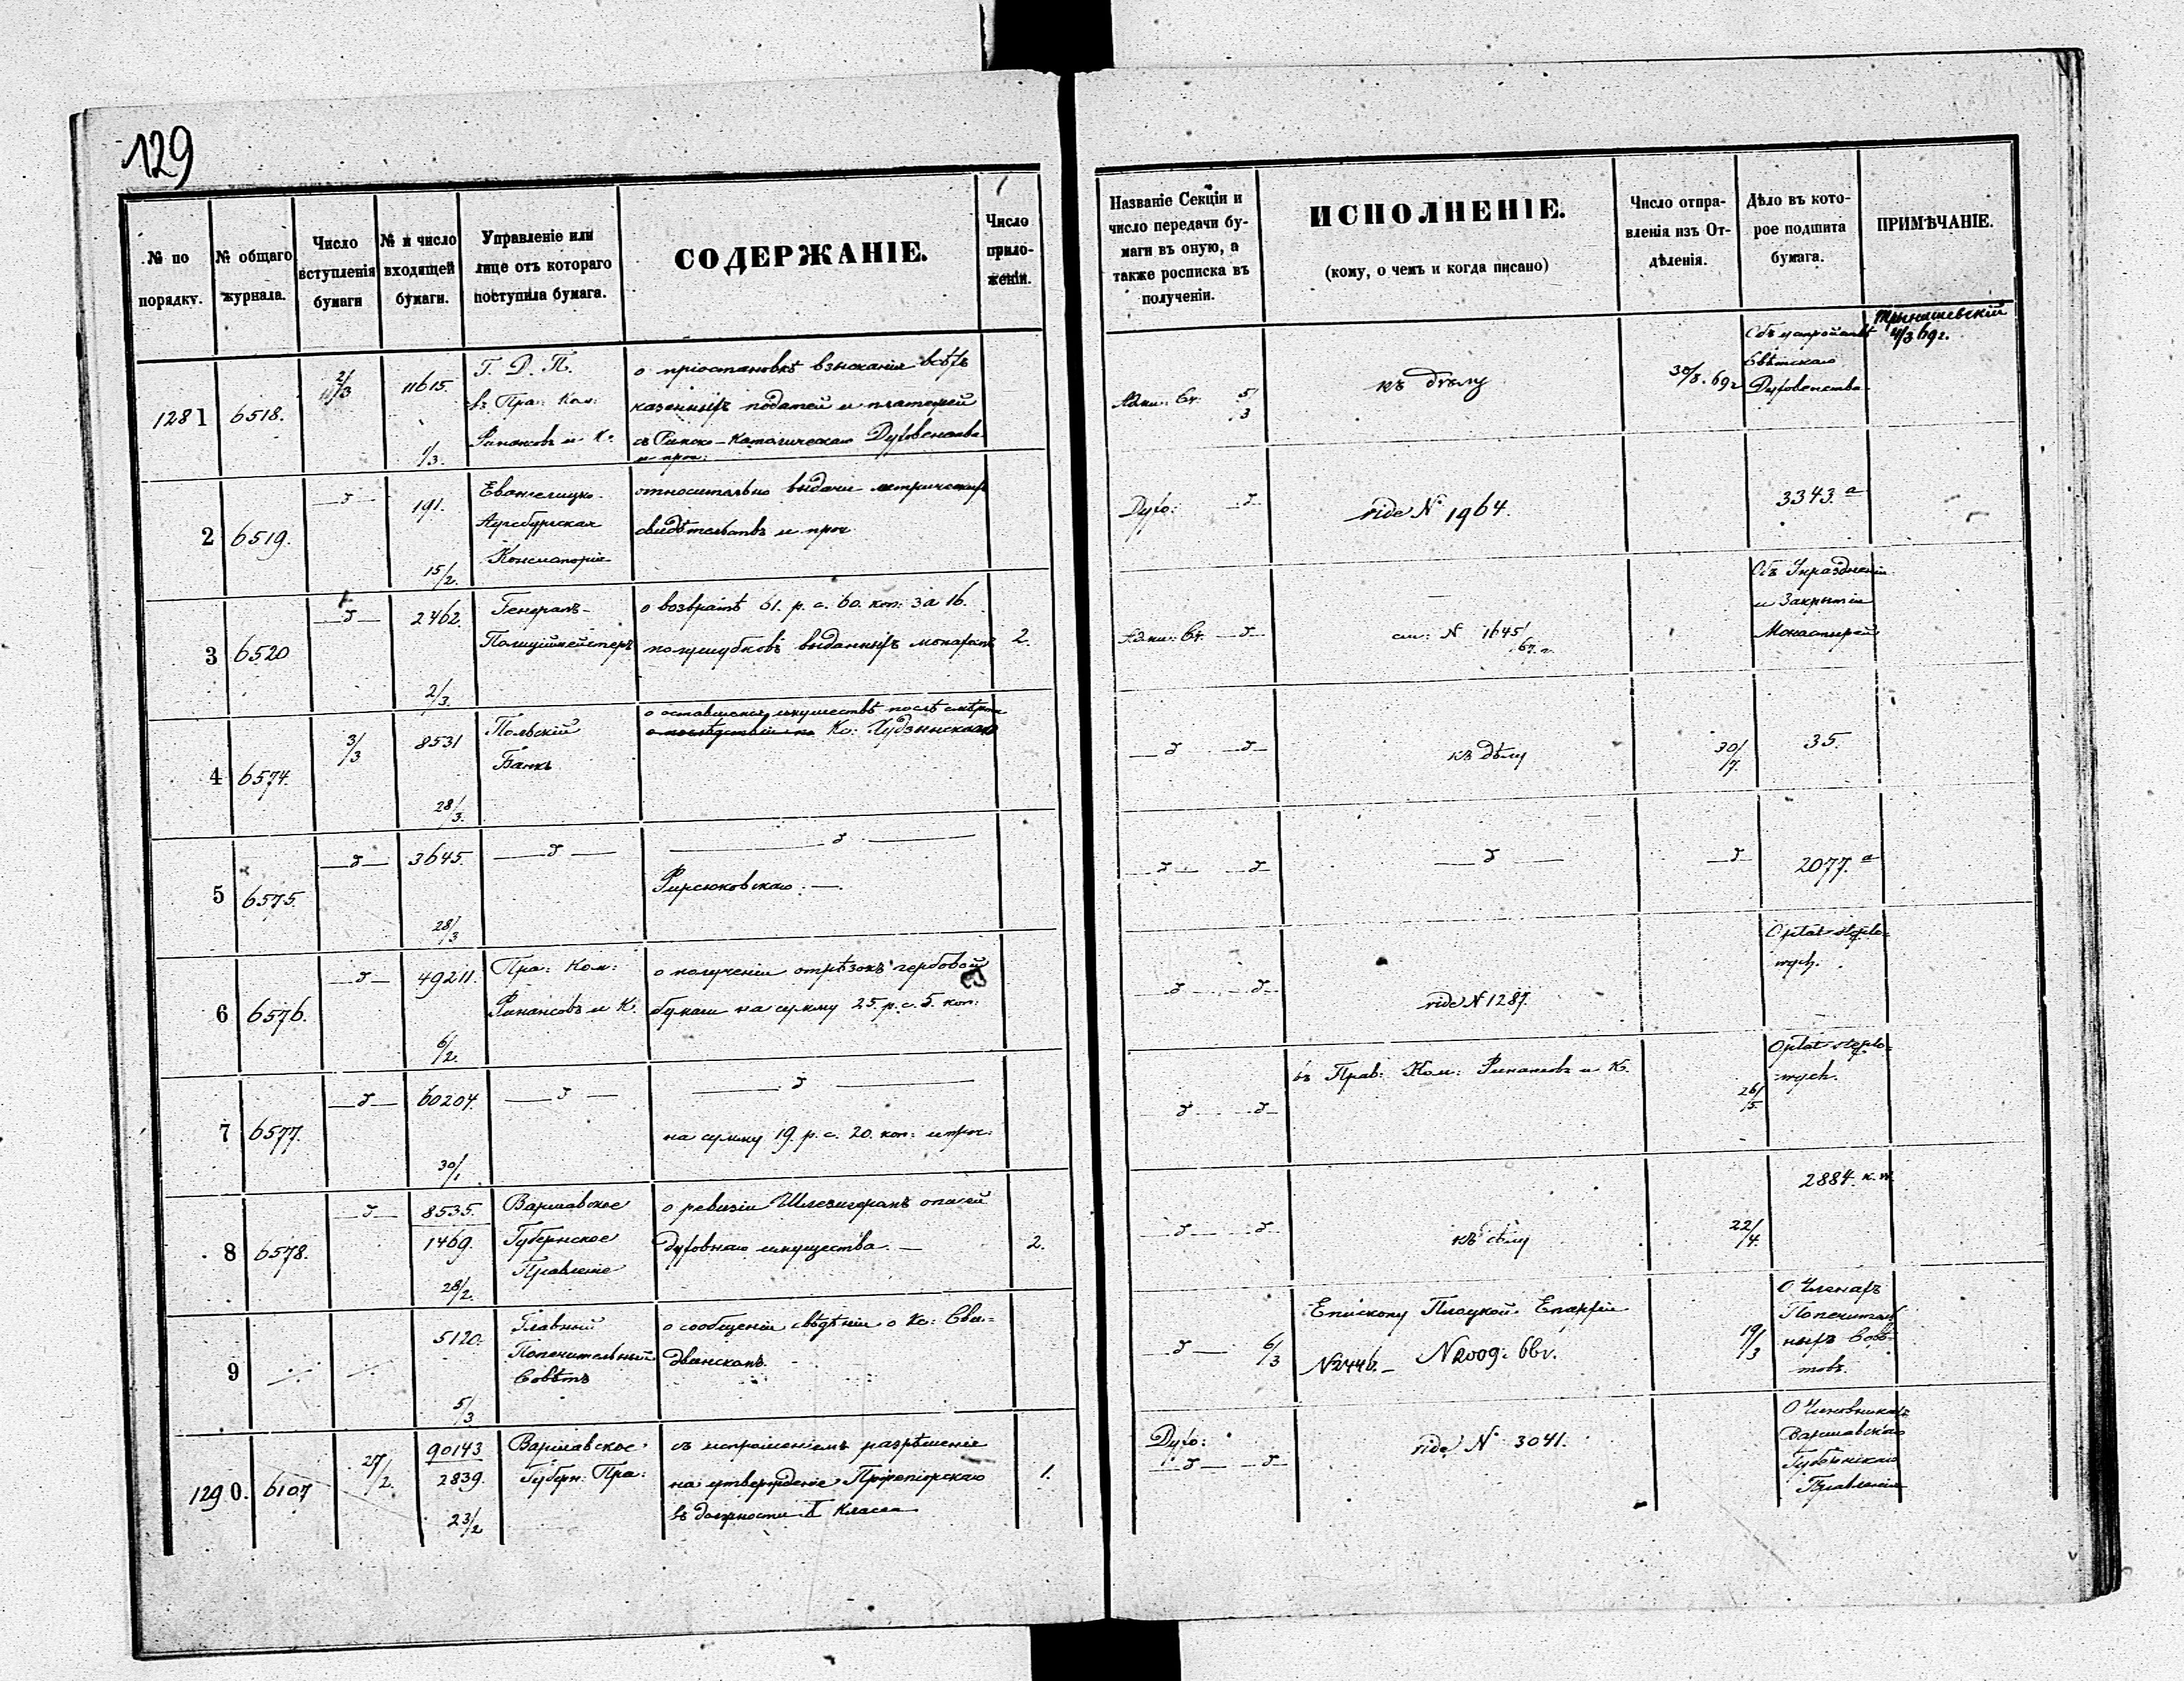 129
№ по порядку.
№ общаго журнала.
Число вступленія бумаги
№ и число входящей бумаги.
Управленіе или лице отъ котораго поступила бумага.
СОДЕРЖАНІЕ.
Число приложеній.
Названіе Секціи и число передачи бумаги въ оную, а также росписка въ полученіи.
ИСПОЛНЕНІЕ.
(кому, о чемъ и когда писано)
Число отправленія изъ Отдѣленія.
Дѣло въ которое подшита бумага.
ПРИМѢЧАНІЕ.
4/3 69 г.
1281 6518. 11615 1/3.
Г. Д. П.
въ Пра: Ком:
Финансовъ и К.
о пріостановкѣ взысканія всѣхъ
казенныхъ податей и платежей
съ Римско-Католическаго Духовенства
и проч:
5/3
къ дѣлу
30/8. 69 г
Духовенства
2 6519. 191. 15/2.
Евангелицко
Аугсбургская
Консисторія
относительно выдачи метрическихъ
свидѣтельствъ и проч
Духо:
vide № 1964.
3343 a
3 6520 2462. 2/3.
Генералъ-
Полицiймейстеръ
о возвратѣ 61. р. с. 60. коп: за 16.
полушубковъ выданныхъ монахамъ
2.
см: N 1645/67. г.
Объ Упраздненіи
и Закрытіи
Монастырей
4 6574. 3/3 8531 28/3.
Польскій
Банкъ
о оставшемся имуществѣ послѣ смерти
Кс: Чудзынскаго
къ дѣлу
30/7.
35.
5 6575. 3645. 28/3
2077. a
6 6576. 49211. 6/2.
Пра: Ком:
Финансовъ и К.
о полученіи отрѣзокъ гербовой
бумаги на сумму 25. р. с. 5. коп:
vide N 1287.
Opłat stęplo=
wych.
7 6577. 60204. 30/1
на сумму 19. р. с. 20. коп: и проч:
въ Прав: Ком: Финансовъ и К.
26/5.
Opłat stęplo=
wych.
8 6578. 8535. 1469. 28/2.
Варшавское
Губернское
Правленіе
о ревизіи
духовнаго имущества. —
2.
къ дѣлу
22/4.
2884.
9 5120. 5/3
Главный
Попечительный
Совѣтъ
о сообщеніи свѣдѣній о Кс: Сви=
дванскомъ.
6/3
Епископу Плоцкой Епархіи
N 2446. — N 2009. 66 г.
19/3
О Членахъ
Попечитель
ныхъ Совѣ-
товъ.
1290. 6107 27/2. 90143 2839. 23/2
Варшавское
Губерн: Пра:
съ испрошеніемъ разрѣшенія
на утвержденіе
въ должности II Класса
1.
Духо:
vide N 3041.
О Чиновникахъ
Варшавскаго
Губернскаго
Правленія